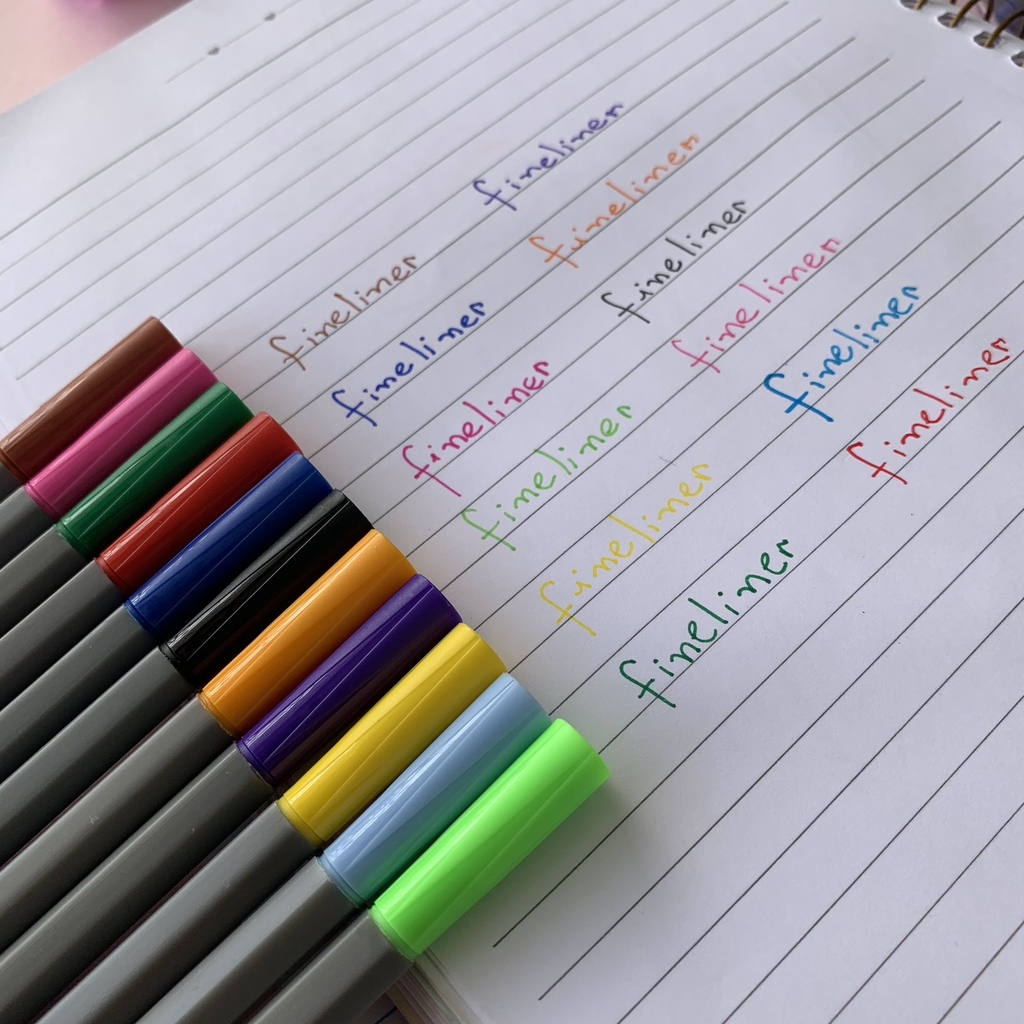 fineliner fineliner
fineliner fineliner
fineliner fineliner
fineliner fineliner
fineliner fineliner
fineliner fineliner